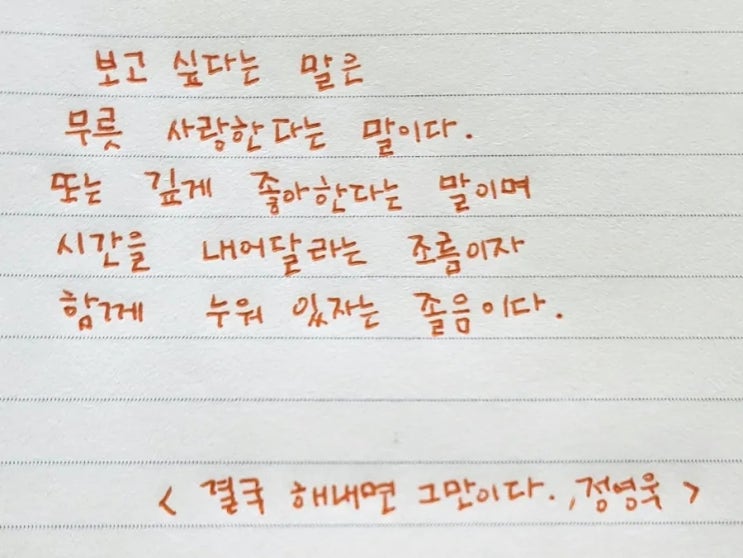 보고 싶다는 말은
무릇 사랑한다는 말이다.
또는 깊게 좋아한다는 말이며
시간을 내어달라는 조름이자
함께 누워 있자는 졸음이다.
< 결국 해내면 그만이다. ,정영욱 >